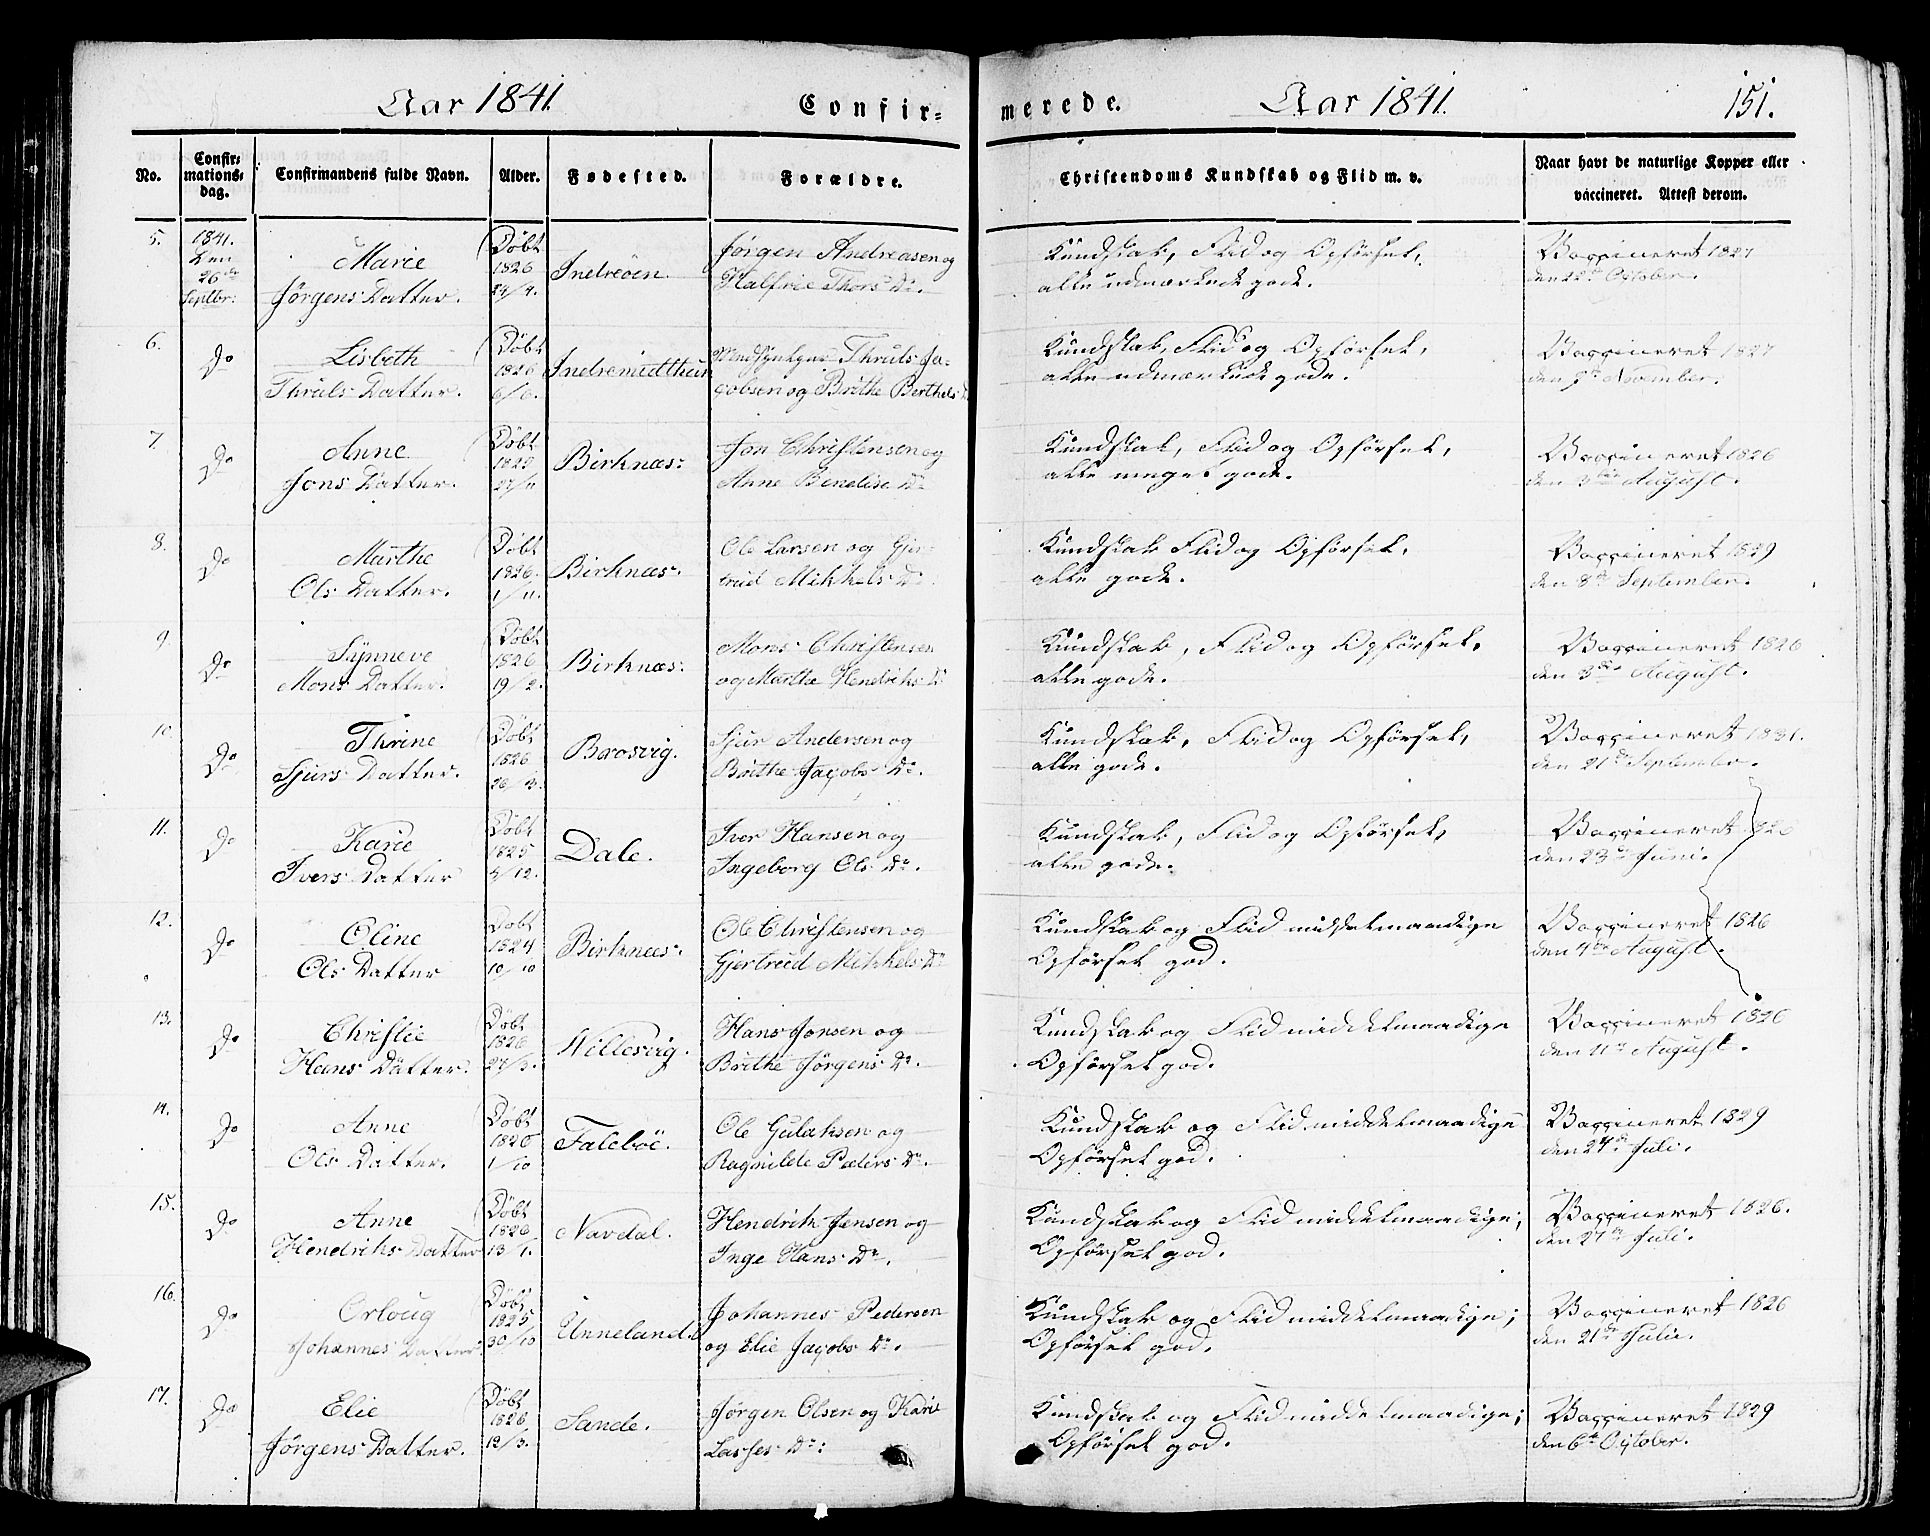 Aar 1841. Confir= merede. Aar 1841. 151.
No. Confir= mations= dag. Confirmandens fulde Navn. Alder. Fødested. Forældre. Christendoms Kundskab og Flid m. v. Naar havt de naturlige Kopper eller vaccineret. Attest derom.
5. 1841. Den 26de Septbr: Marie Jørgens Datter. Døbt 1826 24/4. Indreöen. Jørgen Andreasen og Halfrie Thors Dr. Kundskab, Flid og Opførsel, alle udmærkede gode. Vaccineret 1827 den 22de October.
6. Do Lisbeth Thruls Datter. Døbt 1826 6/6. Indremidthun Thruls Jacobsen og Brithe Berthels D Kundskab, Flid og Opførsel, alle udmærkede gode. Vaccineret 1827 den November.
7. Do Anne Jons Datter. Døbt 1825 27/11 Birknæs: Jon Christensen og Anne Bendixe Dr Kundskab, Flid og Opførsel, alle meget gode. Vaccineret 1826 den 3die August.
8. Do Marthe Ols Datter. Døbt 1826. 1/11. Birknæs. Ole Larsen og Gjertrud Mikkels Dr Kundskab Flid og Opførsel, alle gode. Vaccineret 1829 den 8de September.
9. Do Synneve Mons Datter. Døbt 1826 19/2. Birknæs: Mons Christensen og Marthe Hendriks Dr Kundskab, Flid og Opførsel, alle gode. Vaccineret 1826 den 3die August.
10. Do Thrine Sjurs Datter. Døbt 1826 26/3. Brosvig. Sjur Andersen og Brithe Jacobs Dr. Kundskab, Flid og Opførsel, alle gode. Vaccineret 1831. den 21de Septembr.
11. Do Karie Ivers Datter Døbt 1825 4/12. Dale. Iver Hansen og Ingeborg Ols Dr. Kundskab, Flid og Opførsel, alle gode. Vaccineret den 23de Juni.
12. Do Oline Ols Datter Døbt 1824 10/10 Birknæs: Ole Christensen og Gjertrud Mikkels Dr Kundskab og Flid middelmaadige Opførsel god. Vaccineret 1826 den 4de August.
13. Do Christie Hans Datter. Døbt 1826 27/3. Hillesvig. Hans Jonsen og Brithe Jørgens Dr. Kundskab og Flid middelmaadige Opførsel god. Vaccineret 1826 den 11te August.
14. Do Anne Ols Datter. Døbt 1825 1/10 Faleböe. Ole Gulaksen og Ragnilde Peders Dr. Kundskab og Flid middelmaadige Opførsel god. Vaccineret 1829 den 24de Juli.
15. Do Anne Hendriks Datter Døbt 1826 13/1. Navdal. Hendrik Jensen og Inge Hans Dr. Kundskab og Flid middelmaadige; Opførsel god. Vaccineret 1826. den 27de Juli.
16. Do Orloug Johannes Datter. Døbt 1825 30/10 Unneland. Johannes Pedersen og Elie Jacobs Dr. Kundskab og Flid middelmaadige; Opførsel god. Vaccineret 1826 den 21de Julie.
17. Do Elie Jørgens Datter. Døbt 1826 12/3. Sande. Jørgen Olsen og Karie Lasses Dr: Kundskab og Flid middelmaadige; Opførsel god. Vaccineret 1829 den 6te October.